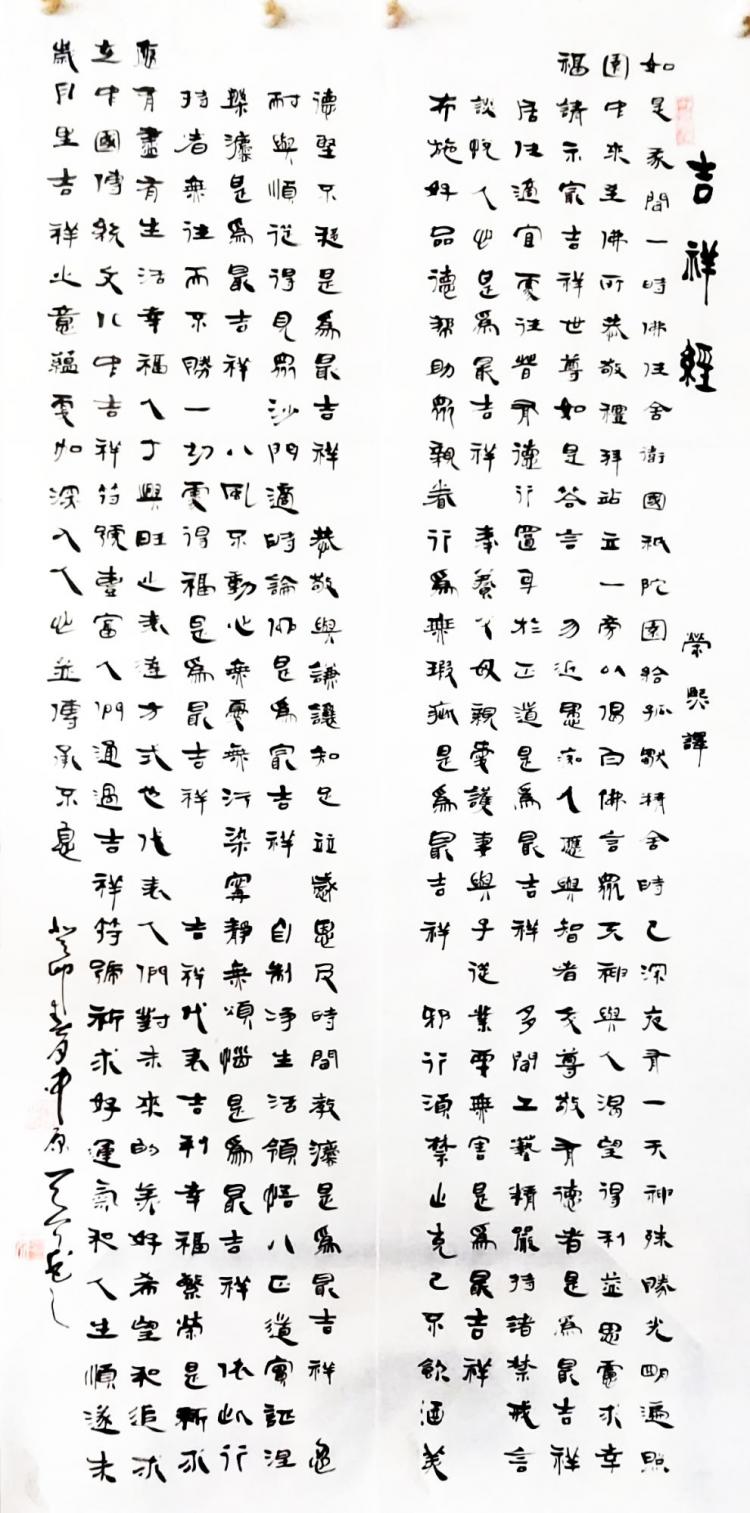 吉祥經
榮熙譯
如是我聞一時佛住舍衛國祇陀園給孤獨精舍時已深夜有一天神殊勝光明遍照
園中來至佛所恭敬禮拜站立一旁以偈白佛言眾天神與人渴望得利益思慮求幸
福請示最吉祥世尊如是答言 勿近愚痴人應與智者交尊敬有德者是為最吉祥
居住適宜處往昔有德行置身於正道是為最吉祥 多聞工藝精嚴持諸禁戒言
談悅人心是為最吉祥 奉養父母親愛護妻與子從業要無害是為最吉祥
布施好品德幫助眾親眷行為無瑕疵是為最吉祥 邪行須禁止克己不飲酒美
德堅不移是為最吉祥 恭敬與謙讓知足並感恩及時聞教灋是為最吉祥 忍
耐與順從得見眾沙門適時論佛是為最吉祥 自制淨生活領悟八正道實証涅
槃灋是為最吉祥 八風不動心無憂無污染寧靜無煩惱是為最吉祥 依此行
持者無往而不勝一切處得福是為最吉祥 吉祥代表吉利幸福繁榮是祈求
應有盡有生活幸福人丁興旺之表達方式也代表人們對未來的美好希望和追求
在中國傳統文化中吉祥符號豐富人們通過吉祥符號祈求好運氣和人生順遂未
歲月里吉祥之意蘊更加深入人心並傳承不息
癸卯春月中原